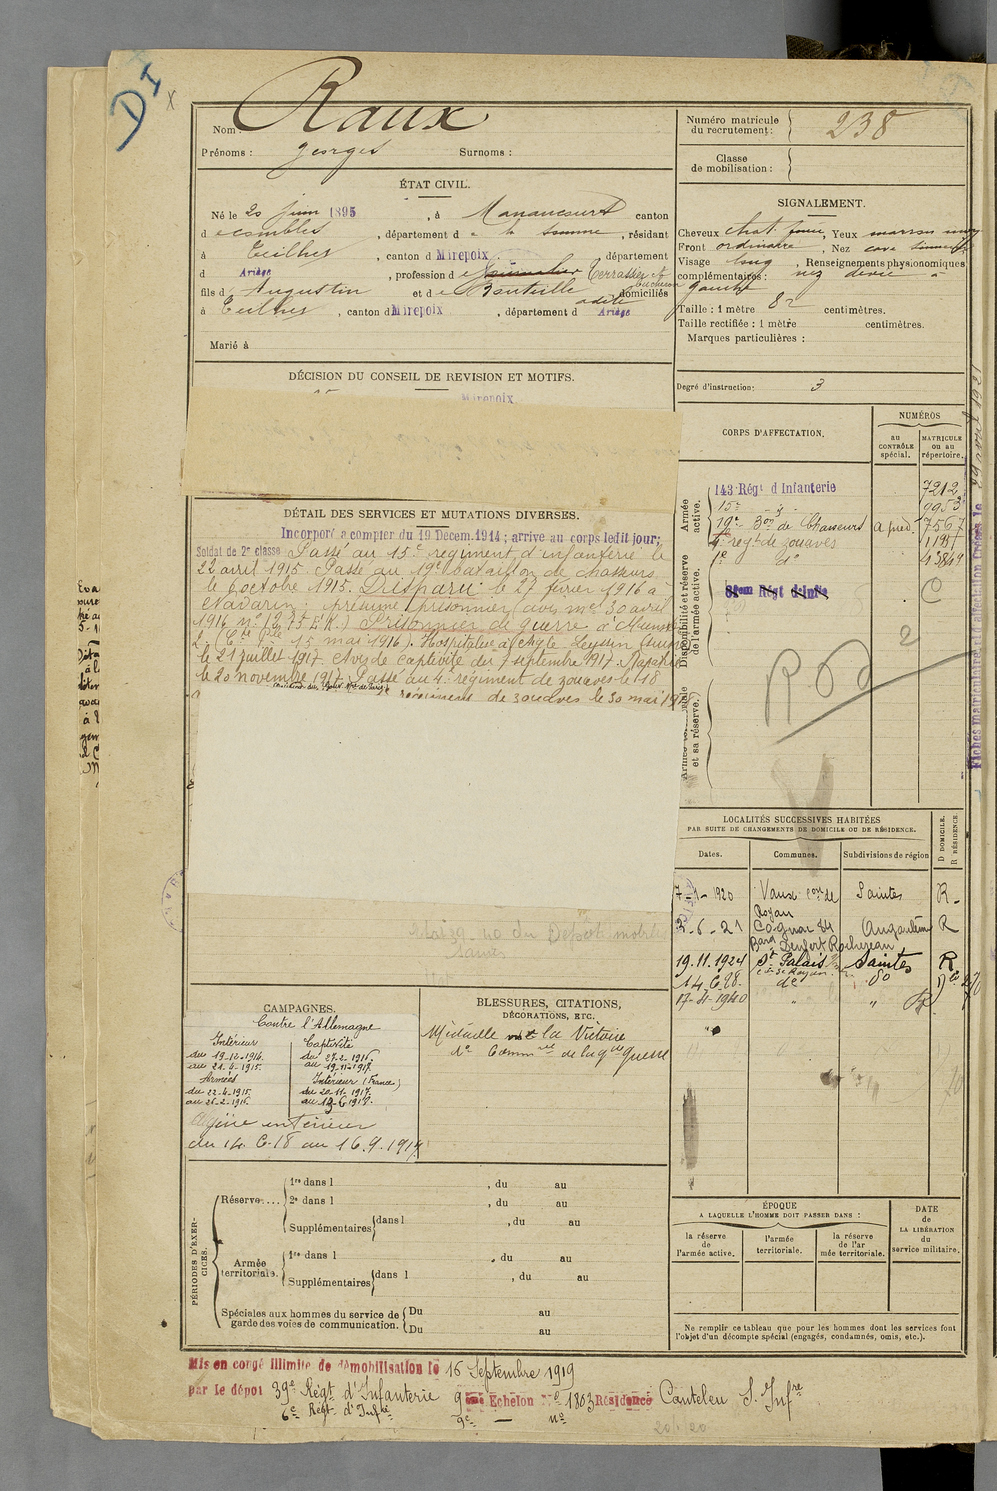 DI
X
Nom : Raux
Prénoms : Georges Surnoms :
ÉTAT CIVIL.
Né le 20 juin 1895, à Manancourt canton
d e combles, département d e la Somme, résidant
à Teilhet, canton d Mirepoix département
d Ariège, profession d e Terrassier
fils d' Augustin et d e Bouteille adèle domiciliés
à Teilhet, canton d Mirepoix, département d Ariège
Marié à
DÉCISION DU CONSEIL DE REVISION ET MOTIFS.
Mirepoix
DÉTAIL DES SERVICES ET MUTATIONS DIVERSES.
Incorporé a compter du 19 Décem. 1914 ; arrive au corps ledit jour;
Soldat de 2e classe Passé au 15e régiment d'infanterie le
22 avril 1915. Passé au 19e bataillon de chasseurs
le 6 octobre 1915. Disparu le 27 février 1916 à
Navarin ; présumé prisonnier (avis mel 30 avril
1916 no (2.75 E.K.) Prisonnier de guerre à
15 mai 1916). Hospitalisé à Aigle Leysin Suisse
le 21 juillet 1917. Avis de captivité du 7 septembre 1917. Rapatrié
le 20 novembre 1917. Passé au 4e régiment de zouaves le 18
régiment de zouaves le 30 mai 1918
CAMPAGNES.
Contre l'Allemagne
Intérieur
du 19-12-1916.
au 21-4-1915.
Armées
du 22-4-1915
au 26-2-1916.
Captivité
du 27-2-1916.
au 19-11-1917.
Intérieur (France)
du 20-11-1917.
au 13-6-1918.
Algérie intérieur
du 14-6-18 au 16.9.1919
BLESSURES, CITATIONS,
DÉCORATIONS, ETC.
Médaille de la Victoire
de Commve de la gde guerre
PÉRIODES D'EXERCICES.
Réserve....
1re dans l , du au
2e dans l , du au
Supplémentaires dans l , du au
Armée territoriale.
1re dans l , du au
Supplémentaires dans l , du au
Spéciales aux hommes du service de garde des voies de communication.
Du au
Du au
Mis en congé illimité de démobilisation le 16 Septembre 1919
par le dépot 39e Régt d'Infanterie 9eme Echelon No 1803 Résidence Canteleu S. Infre
6e Régt d'Infie
Numéro matricule du recrutement : 238
Classe de mobilisation :
SIGNALEMENT.
Cheveux chat. foncé, Yeux marron
Front ordinaire, Nez cave sinueux
Visage long, Renseignements physionomiques
complémentaires : nez dévié à
gauche
Taille : 1 mètre 82 centimètres.
Taille rectifiée : 1 mètre centimètres.
Marques particulières :
Degré d'instruction : 3
CORPS D'AFFECTATION.
NUMÉROS
au CONTRÔLE spécial.
MATRICULE ou au répertoire.
Armée active.
143 Régt d'Infanterie 7212
15e - d - 9953
19e Bon de Chasseurs à pied 7567
4e régt de zouaves 1195
1e do 43849
Disponibilité et réserve de l'armée active.
81eme Régt d'infie C
Armée territoriale et sa réserve.
LOCALITÉS SUCCESSIVES HABITÉES
PAR SUITE DE CHANGEMENTS DE DOMICILE OU DE RÉSIDENCE.
Dates. Communes. Subdivisions de région D DOMICILE. R RÉSIDENCE.
7-1-1920 Vaux con de Royan Saintes R.
3-6-21 Cognac 84 Bard Denfert Rochereau Angoulême R
19.11.1924 St Palais Saintes R
14.6.28 do do D
17-4-1940 " "
ÉPOQUE
A LAQUELLE L'HOMME DOIT PASSER DANS :
la réserve de l'armée active.
l'armée territoriale.
la réserve de l'armée territoriale.
DATE de LA LIBÉRATION du service militaire.
Ne remplir ce tableau que pour les hommes dont les services font
l'objet d'un décompte spécial (engagés, condamnés, omis, etc.).